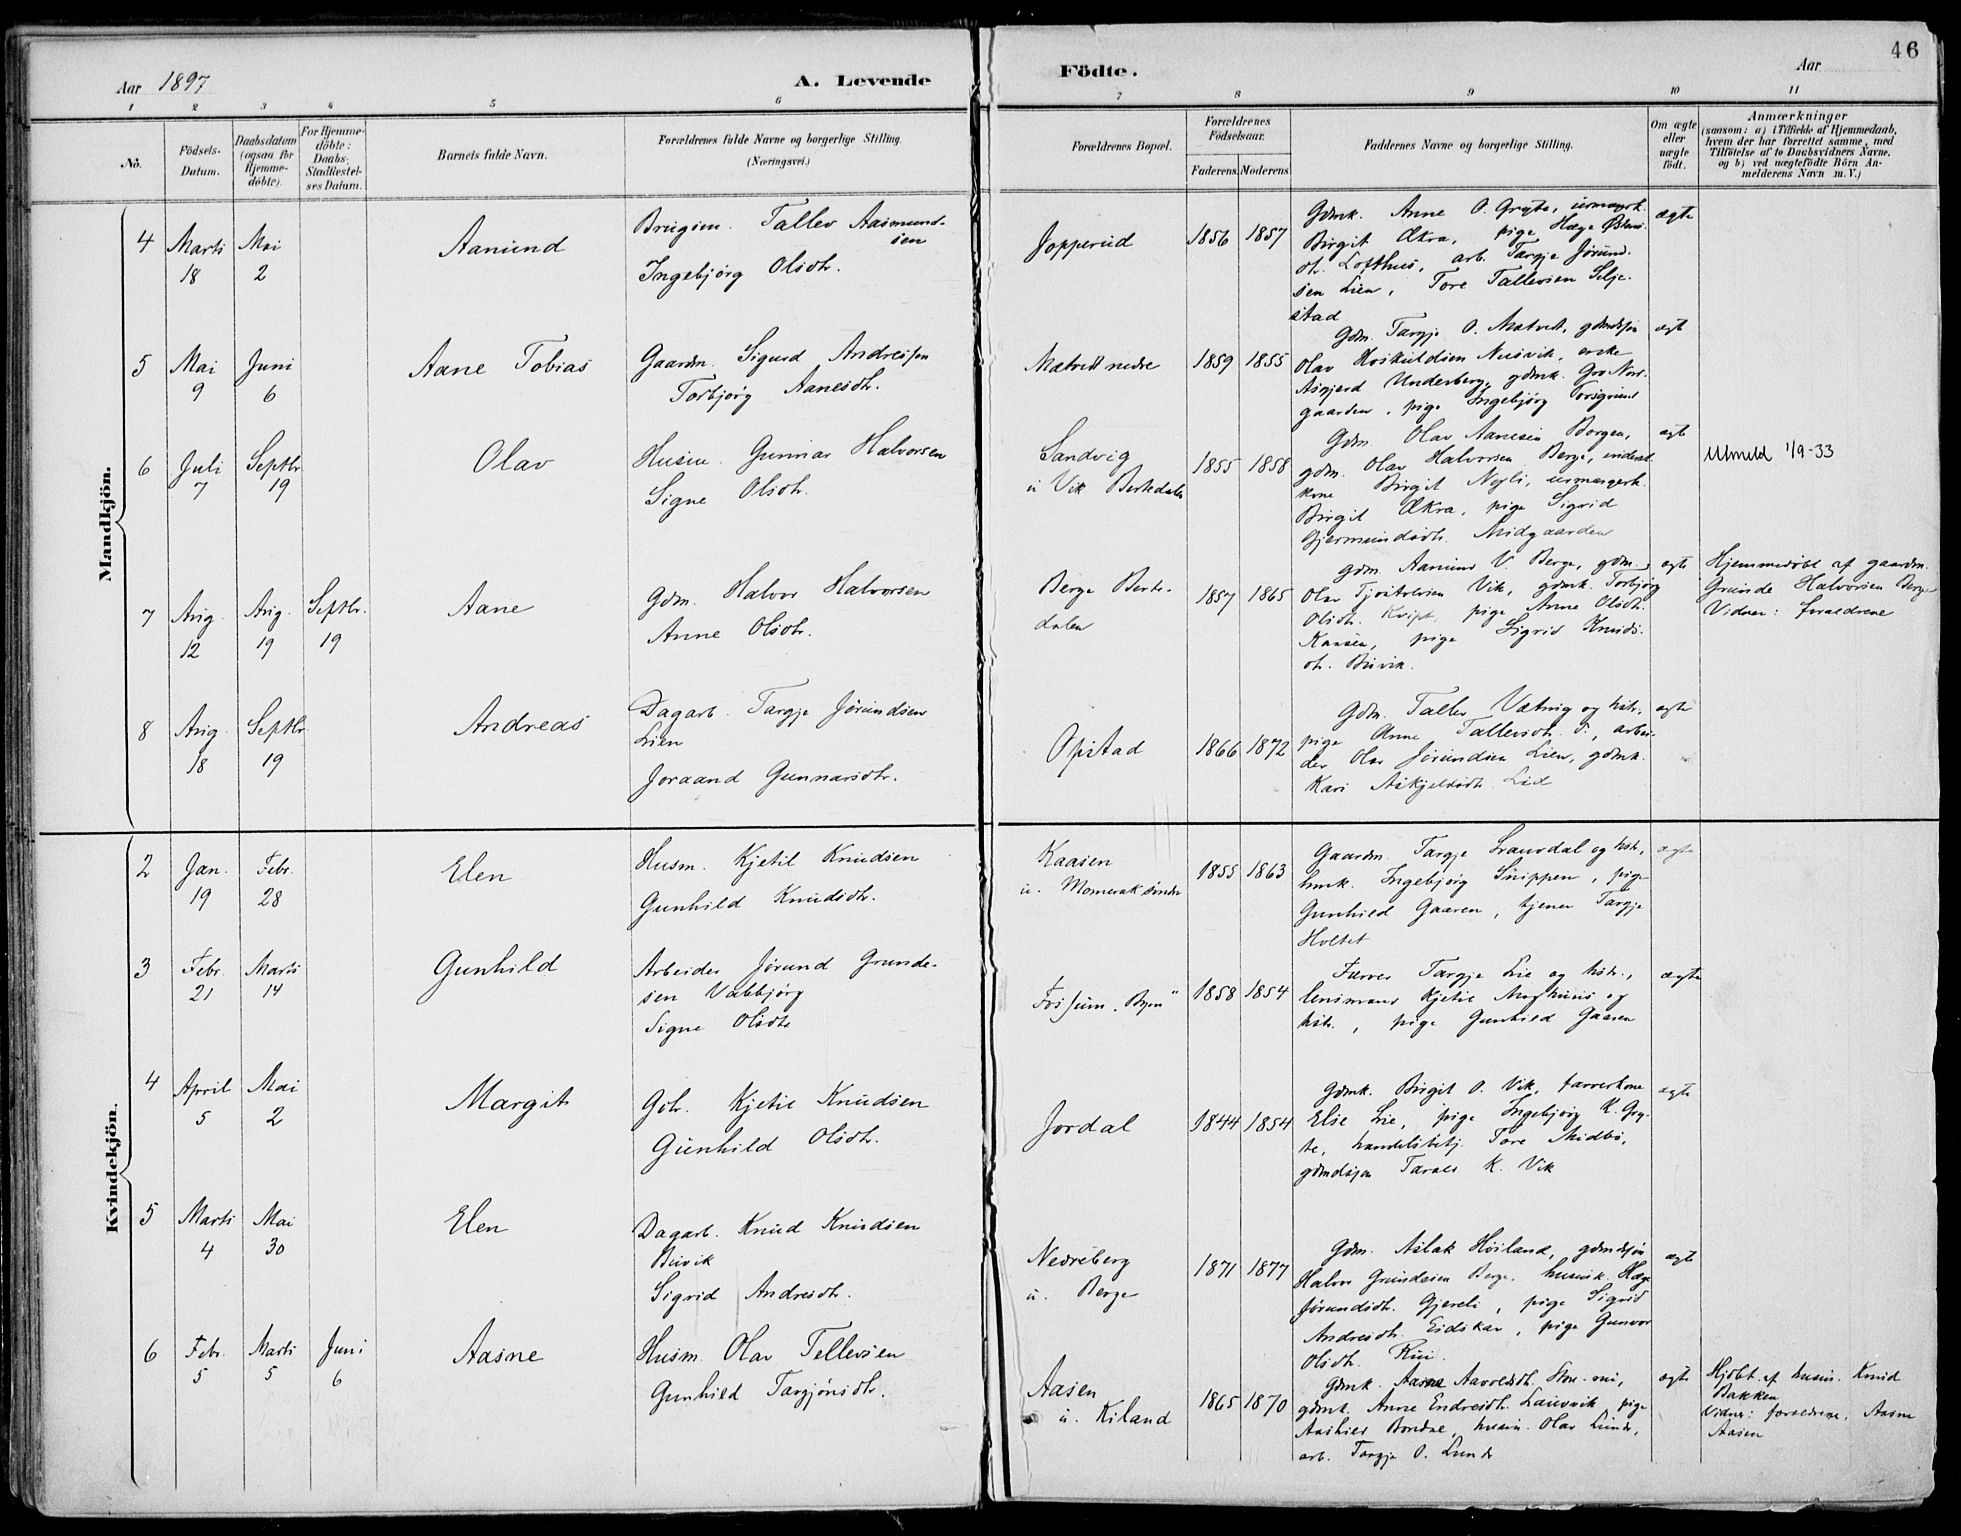 46
Aar 1897
A. Levende
Födte.
Aar
1 2 3 4 5 6 7 8 9 10 11
No.
Födsels-Datum.
Daabsdatum (ogsaa for Hjemme-døbte).
For Hjemme-döbte: Daabs-Stadfæstel-ses Datum.
Barnets fulde Navn.
Forældrenes fulde Navne og borgerlige Stilling. (Næringsvei.)
Forældrenes Bopæl.
Forældrenes Födselsaar.
Faderens. Moderens.
Faddernes Navne og borgerlige Stilling.
Om ægte eller uægte födt.
Anmærkninger
(saasom: a) i Tilfælde af Hjemmedaab, hvem der har forrettet samme, med Tilföielse af to Daabsvidners Navne, og b) ved uægtefödte Börn An-melderens Navn m. V.)
Mandkjön.
4
Marts 18
Mai 2
Aanund
Brugsm. Tallev Aasmund-
sen
Ingebjørg Olsdtr.
Jopperud
1856 1857
Gdmk. Anne O. Gryte,
Birgit Økra, pige Hæge
dtr. Lofthus, arb. Targje Jørund-
sen Lien, Tore Tallevsen Selje-
stad
ægte
5
Mai 9
Juni 6
Aane Tobias
Gaardm. Sigurd Andressen
Torbjørg Aanesdtr.
Matvett nedre
1859 1855
Gdm. Targje O. Matvett, gdmdsøn
Olav Hoskuldsen Nesvik, enke
Asgjerd Underberg, gdmk. Gro Nord-
gaarden, pige Ingebjørg
ægte
6
Juli 7
Septbr. 19
Olav
Husm. Gunnar Halvorsen
Signe Olsdtr.
Sandvig
u Vik Bertedalen
1855 1858
Gdm. Olav Aanesen Borgen,
gdm. Olav Halvorsen Berge,
kone Birgit Nejli,
Birgit Økra, pige Sigrid
Gjermundsdtr. Midgaarden
ægte
Utmeld 1/9-33
7
Aug. 12
Aug. 19
Septbr. 19
Aane
Gdm. Halvor Halvorsen
Anne Olsdtr.
Berge Berte-
dalen
1857 1865
Gdm. Aanund V. Berge, gdm.
Olav Tjostolvsen Vik, gdmk. Torbjørg
Olsdtr. pige Anne Olsdtr.
Kaasen, pige Sigrid Knuds-
dtr. Buvik.
ægte
Hjemmedøbt af gaardm.
Grunde Halvorsen Berge
Vidner: forældrene
8
Aug. 18
Septbr. 19
Andreas
Dagarb. Targje Jørundsen
Lien
Joraand Gunnarsdtr.
Opstad
1866 1872
Gdm. Tallev Vætnig og hstr.,
pige Anne Tallevsdtr. arbei-
der Olav Jørundsen Lien, gdmk.
Kari Askjelsdtr. Lid
ægte
Kvindekjön.
2
Jan. 19
Febr. 28
Elen
Husm. Kjetil Knudsen
Gunhild Knudsdtr.
Kaasen
u. Momrak søndre
1855 1863
Gaardm. Targje Trauvdal og hstr.,
hmk. Ingebjørg Snippen, pige
Gunhild Gaaren, tjener Targje
Holtet
ægte
3
Febr. 21
Marts 14
Gunhild
Arbeider Jørund Grunde-
sen Vabbjørg
Signe Olsdtr
Fossum „Byen"
1858 1854
Farver Targje Lie og hstr.,
lensmand Kjetil Aughuus og
hstr., pige Gunhild Gaaren
ægte
4
April 5
Mai 2
Margit
Gbr. Kjetil Knudsen
Gunhild Olsdtr.
Jordal
1844 1854
Gdmk. Birgit O. Vik, farverkone
Else Lie, pige Ingebjørg K. Gry-
te, handelsbetj. Tore Midbø,
gdmdsøn Tarald K. Vik
ægte
5
Marts 4
Mai 30
Elen
Dagarb. Knud Knudsen
Buvik
Sigrid Andresdtr.
Nedreberg
u. Berge
1871 1877
Gdm. Aslak Høiland, gdmdsøn
Halvor Grundesen Berge, husmk. Hæge
Jørundsdtr. Gjereli, pige Sigrid
Andresdtr. Eidskar, pige Gunvor
Olsdtr. Rui.
ægte
6
Febr. 5
Marts 5
Juni 6
Aasne
Husm. Olav Tellevsen
Gunhild Targjønsdtr.
Aasen
u. Kiland
1865 1870
Gdmk. Aasne Aavoldsdtr.
gdmk. Anne Endresdtr. Lauvvik, pige
husm. Olav Lunde,
arb. Targje O. Lunde
ægte
Hjdbt. af husm. Knud
Bakken
Vidner: forældrene, Aasne
Aasen